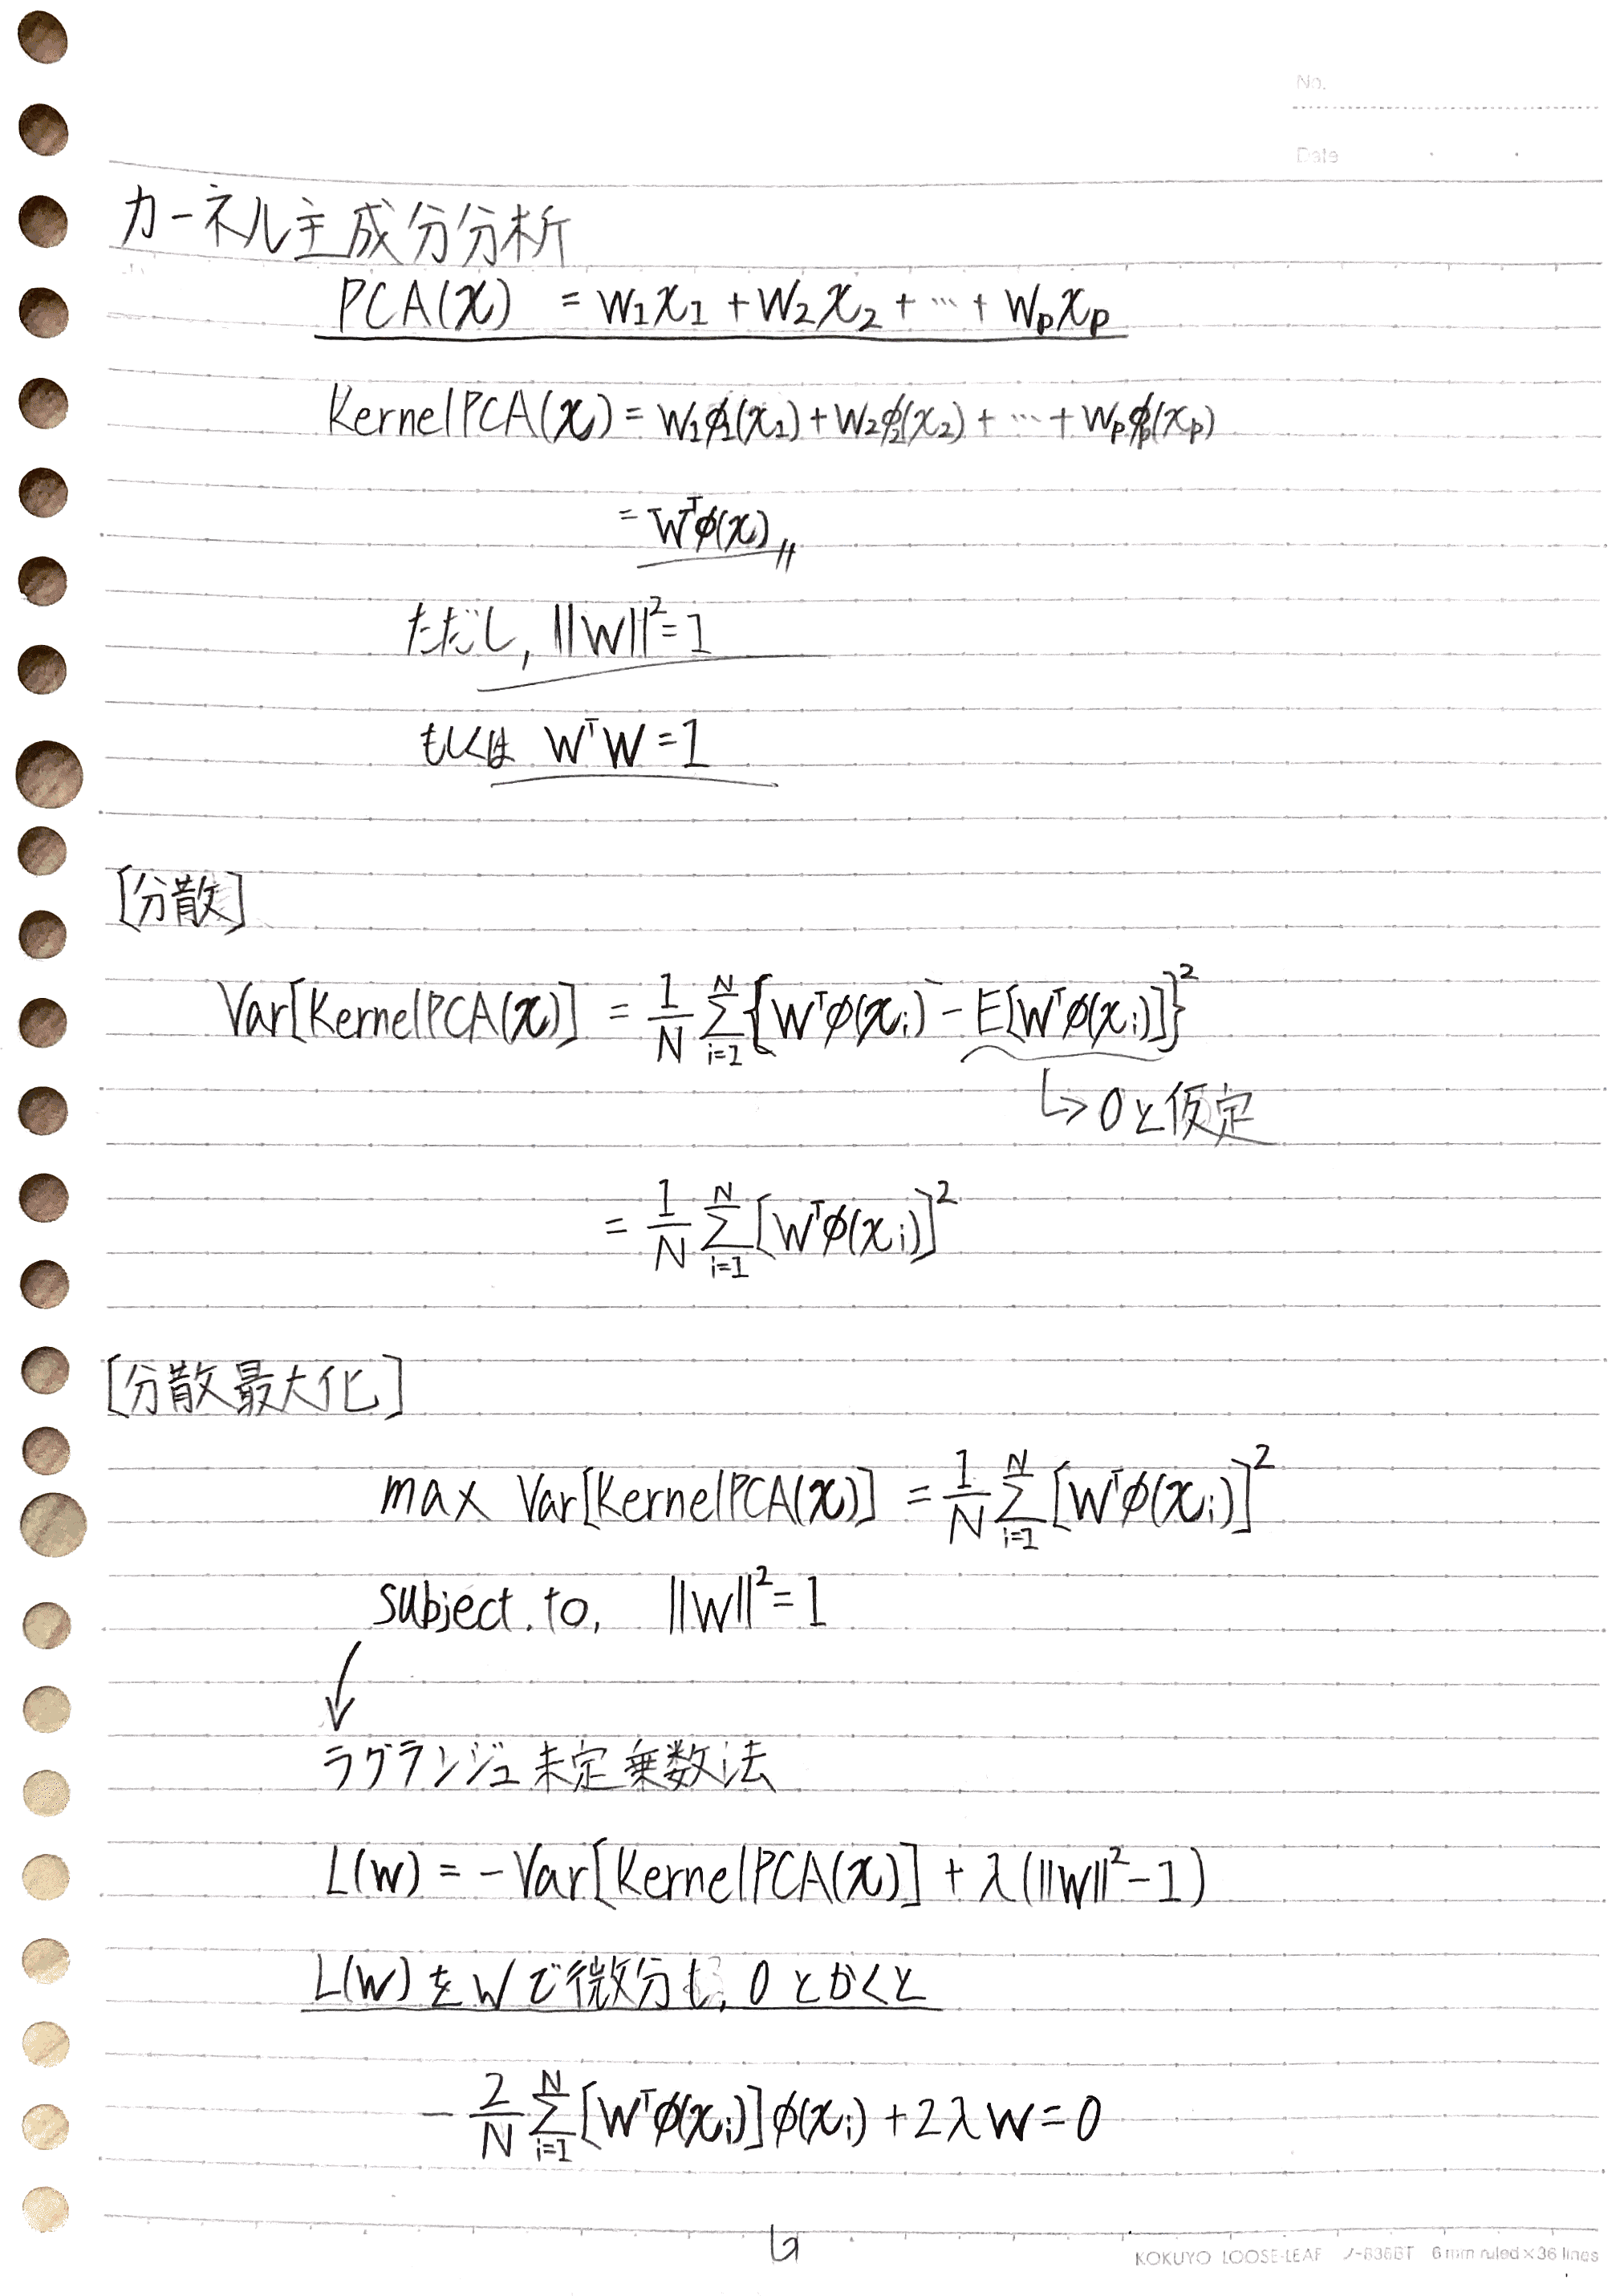 No.
Date
カーネル主成分分析
PCA(x) = w1x1 + w2x2 + … + wpxp
KernelPCA(x) = w1ϕ1(x1) + w2ϕ2(x2) + … + wpϕp(xp)
= wᵀϕ(x)〃
ただし, ||w||² = 1
もしくは wᵀw = 1
[分散]
Var[KernelPCA(x)] = 1/N Σ_{i=1}^{N} {wᵀϕ(xi) - E[wᵀϕ(xi)]}²
↳ 0と仮定
= 1/N Σ_{i=1}^{N} [wᵀϕ(xi)]²
[分散最大化]
max Var[KernelPCA(x)] = 1/N Σ_{i=1}^{N} [wᵀϕ(xi)]²
subject.to, ||w||² = 1
↓
ラグランジュ未定乗数法
L(w) = -Var[KernelPCA(x)] + λ(||w||² - 1)
L(w)をwで微分し, 0とかくと
-2/N Σ_{i=1}^{N} [wᵀϕ(xi)]ϕ(xi) + 2λw = 0
KOKUYO LOOSE-LEAF ノ-836BT 6mm ruled×36 lines